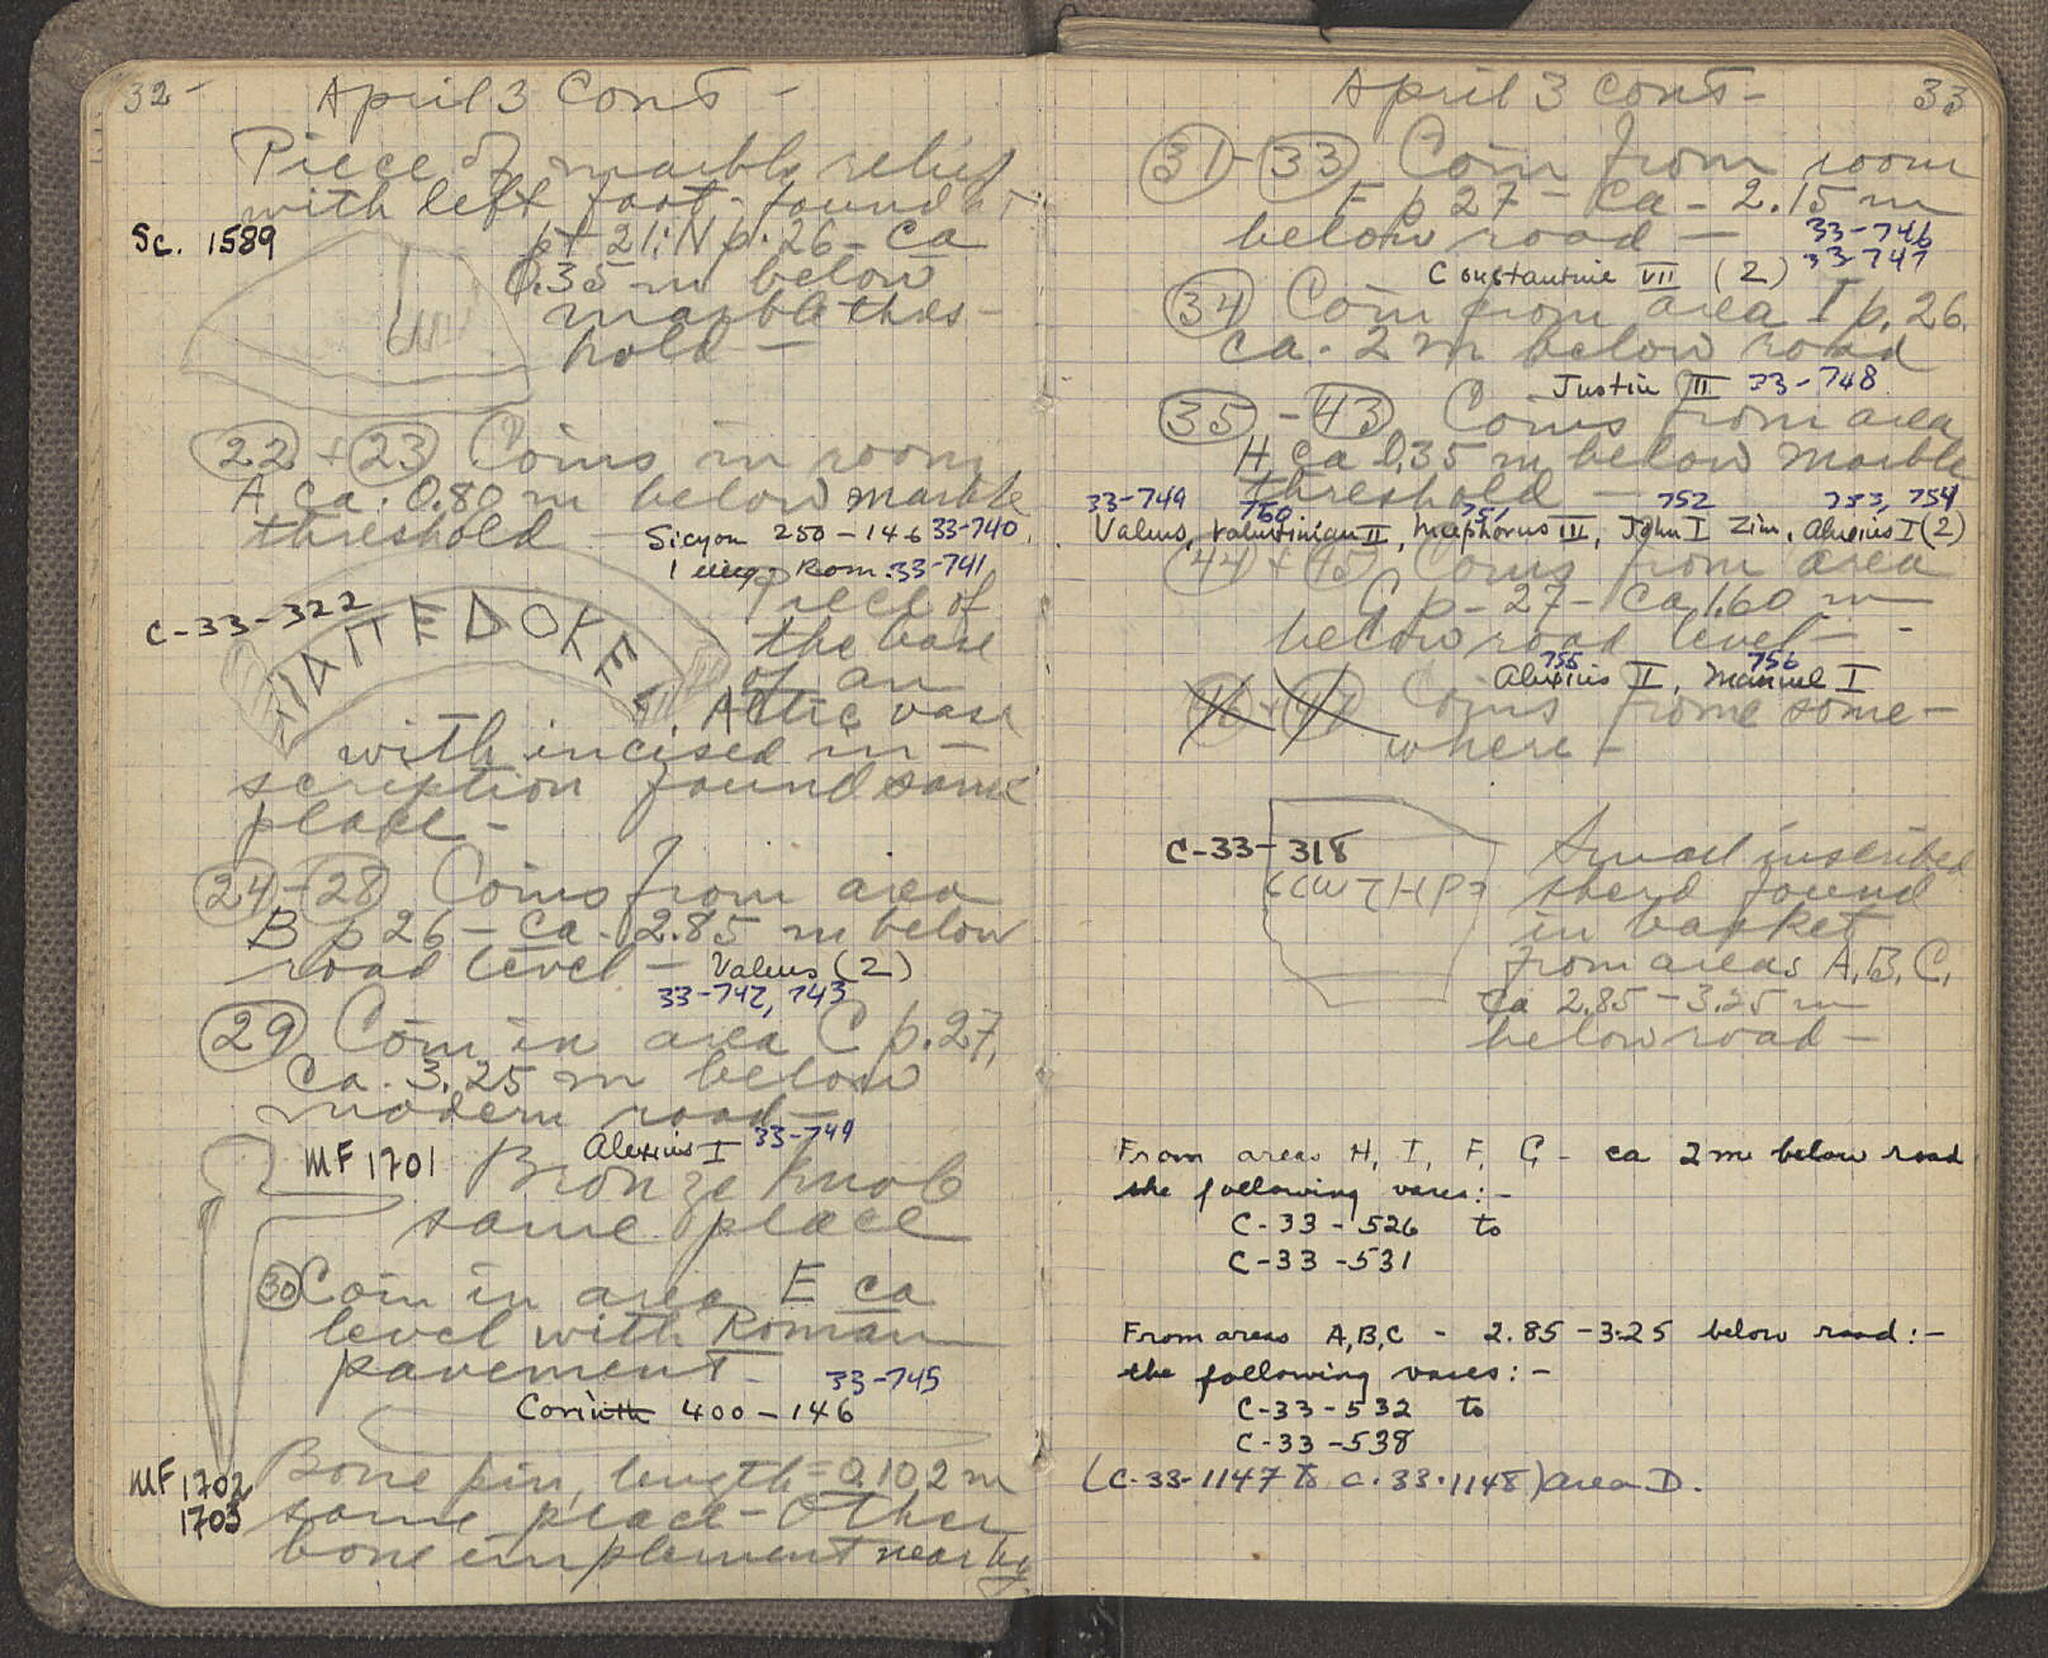 32-
April 3 Cont -
Piece of marble relief
with left foot - found at
Sc. 1589
pt 21:N p. 26 - ca
0.35 m below
marble thres-
hold -
22 + 23 Coins in room
A ca. 0.80 m below marble
threshold -
Sicyon 250-146 33-740
1 illeg. Rom. 33-741
C-33-322
ΕΔΟΚΕ
Piece of
the base
of an
Attic vase
with incised in-
scription found same
place -
24-28 Coins from area
B p 26 - ca. 2.85 m below
road level - Valens (2)
33-742, 743
29 Coin in area C p. 27,
ca. 3.25 m below
modern road -
Alexius I 33-744
MF 1701 Bronze knob
same place
30 Coin in area E ca
level with Roman
pavement - 33-745
Corinth 400-146
MF 1702 Bone pin, length = 0.102 m
1703 same place - Other
bone implement nearby
April 3 cont- 33
31-33 Coin from room
F p 27 - ca - 2.15 m
below road - 33-746
33-747
Constantine VII (2)
34 Coin from area I p. 26.
ca. 2 m below road
Justin II 33-748
35-43 Coins from area
H, ca 0.35 m below marble
threshold -
33-749 750 751 752 753, 754
Valens, Valentinian II, Nicephorus III, John I Zim, Alexius I (2)
44 + 45 Coins from area
G p - 27 - ca 1.60 m
below road level -
755 756
Alexius II, Manuel I
46 + 47 Coins frome some-
where -
C-33-318
Small inscribed
sherd found
in basket
from areas A, B, C,
ca 2.85-3.25 m
below road -
From areas H, I, F, G - ca 2 m below road
the following vases:-
C-33-526 to
C-33-531
From areas A,B,C - 2.85-3.25 below road:-
the following vases:-
C-33-532 to
C-33-538
(C-33-1147 to C.33.1148) area D.